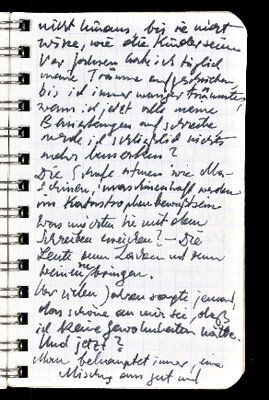 nicht hinaus, bis sie nicht
wisse, wie die Kinder seien
Vor Jahren habe ich täglich
meine Träume aufgeschrieben
bis ich immer weniger träumte,
wenn ich jetzt alle meine
aufschreibe
werde ich schließlich nichts
mehr bemerken?
Die Schafe atmen wie Ma-
schinen, maschinenhaft werden
im Katastrophenbewußtsein
Was möchten Sie mit dem
Schreiben erreichen? – Die
Leute zum Lachen und zum
Weinen zu bringen.
Vor vielen Jahren sagte jemand,
das schöne an mir sei, daß
ich keine Gewohnheiten hätte.
Und jetzt?
behauptet immer, eine
Mischung aus gut und